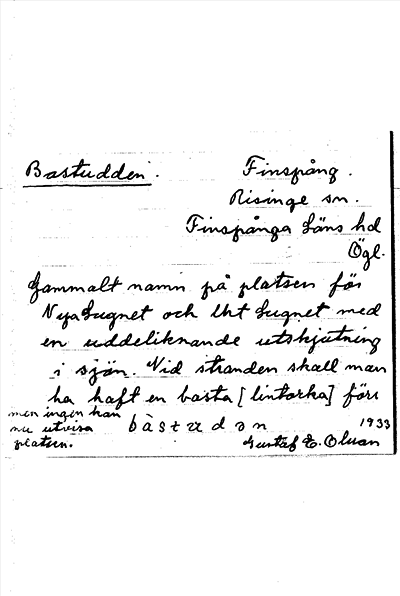 Bastudden.
Finspång.
Risinge sn.
Finspånga Läns hd
Ögl.
Gammalt namn på platsen för
Nya Lugnet och Lugnet med
en uddeliknande utskjutning
i sjön. Vid stranden skall man
ha haft en basta [lintorka] förr
men ingen kan
nu utvisa
platsen.
bàstʉdən
1933
Gustaf E. Olsson